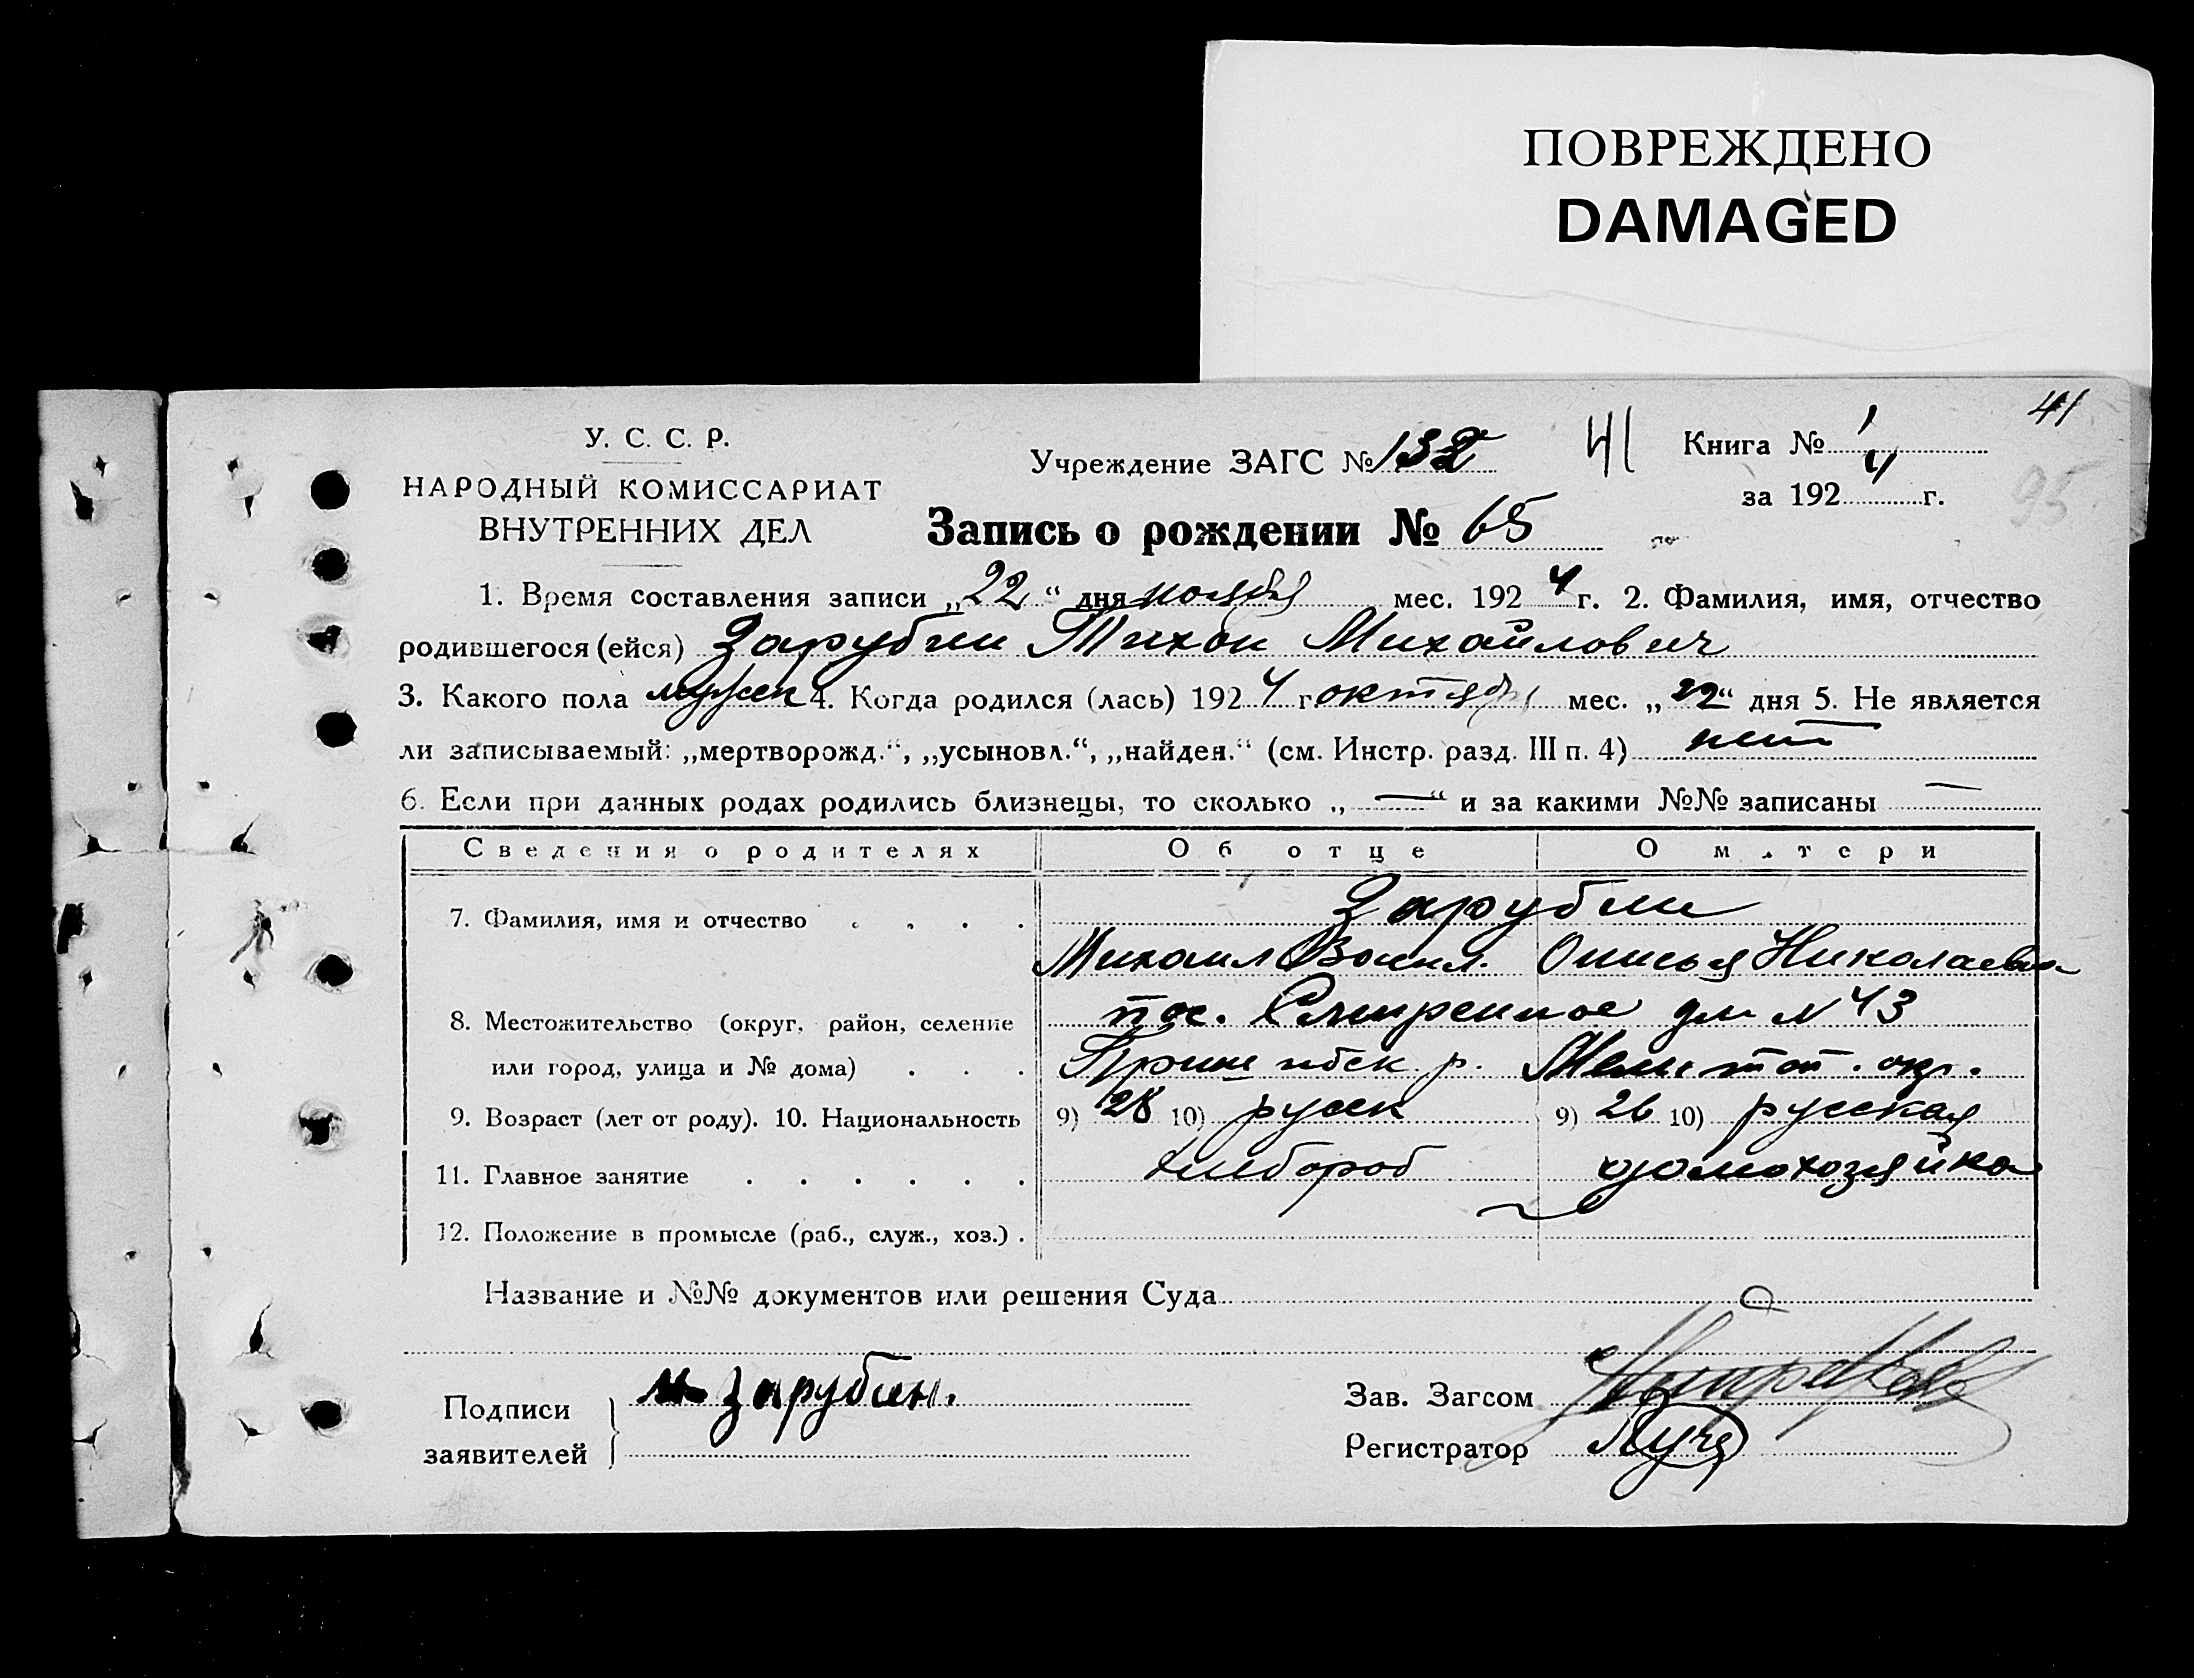 ПОВРЕЖДЕНО
DAMAGED
41
У. С. С. Р.
НАРОДНЫЙ КОМИССАРИАТ
ВНУТРЕННИХ ДЕЛ
Учреждение ЗАГС № 132
41
Книга № 1
за 1924 г.
95
Запись о рождении № 65
1. Время составления записи „22“ дня ноября мес. 1924 г. 2. Фамилия, имя, отчество
родившегося (ейся) Зарубин Тихон Михайлович
3. Какого пола мужск 4. Когда родился (лась) 1924 г. октября мес. „22“ дня 5. Не является
ли записываемый: „мертворожд.“, „усыновл.“, „найден.“ (см. Инстр. разд. III п. 4) нет
6. Если при данных родах родились близнецы, то сколько „—“ и за какими №№ записаны —
Сведения о родителях Об отце О матери
7. Фамилия, имя и отчество . . . . Зарубин
Михаил Васил. Николаевна
8. Местожительство (округ, район, селение пос. дм N 43
или город, улица и № дома) . . . р. Мелитоп. окр.
9. Возраст (лет от роду). 10. Национальность 9) 28 10) русск 9) 26 10) русская
11. Главное занятие . . . . . . хлебороб домохозяйка
12. Положение в промысле (раб., служ., хоз.) .
Название и №№ документов или решения Суда
Подписи заявителей М Зарубин.
Зав. Загсом
Регистратор